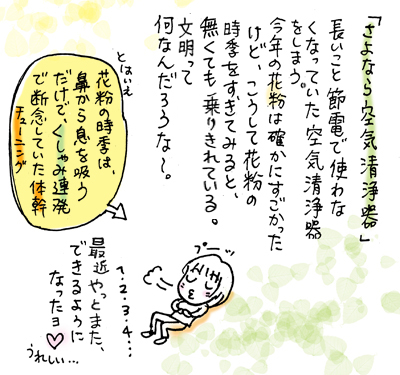 「さよなら空気清浄器」
長いこと節電で使わな
くなっていた空気清浄器
をしまう。
今年の花粉は確かにすごかった
けど、こうして花粉の
時季をすぎてみると、
無くても乗りきれている。
文明って
何なんだろうな〜。
とはいえ
花粉の時季は、
鼻から息を吸う
だけで、くしゃみ連発
で断念していた体幹
チューニング
プーッ
1・2・3・4…
最近やっとまた、
できるように
なったョ♡
うれしい…